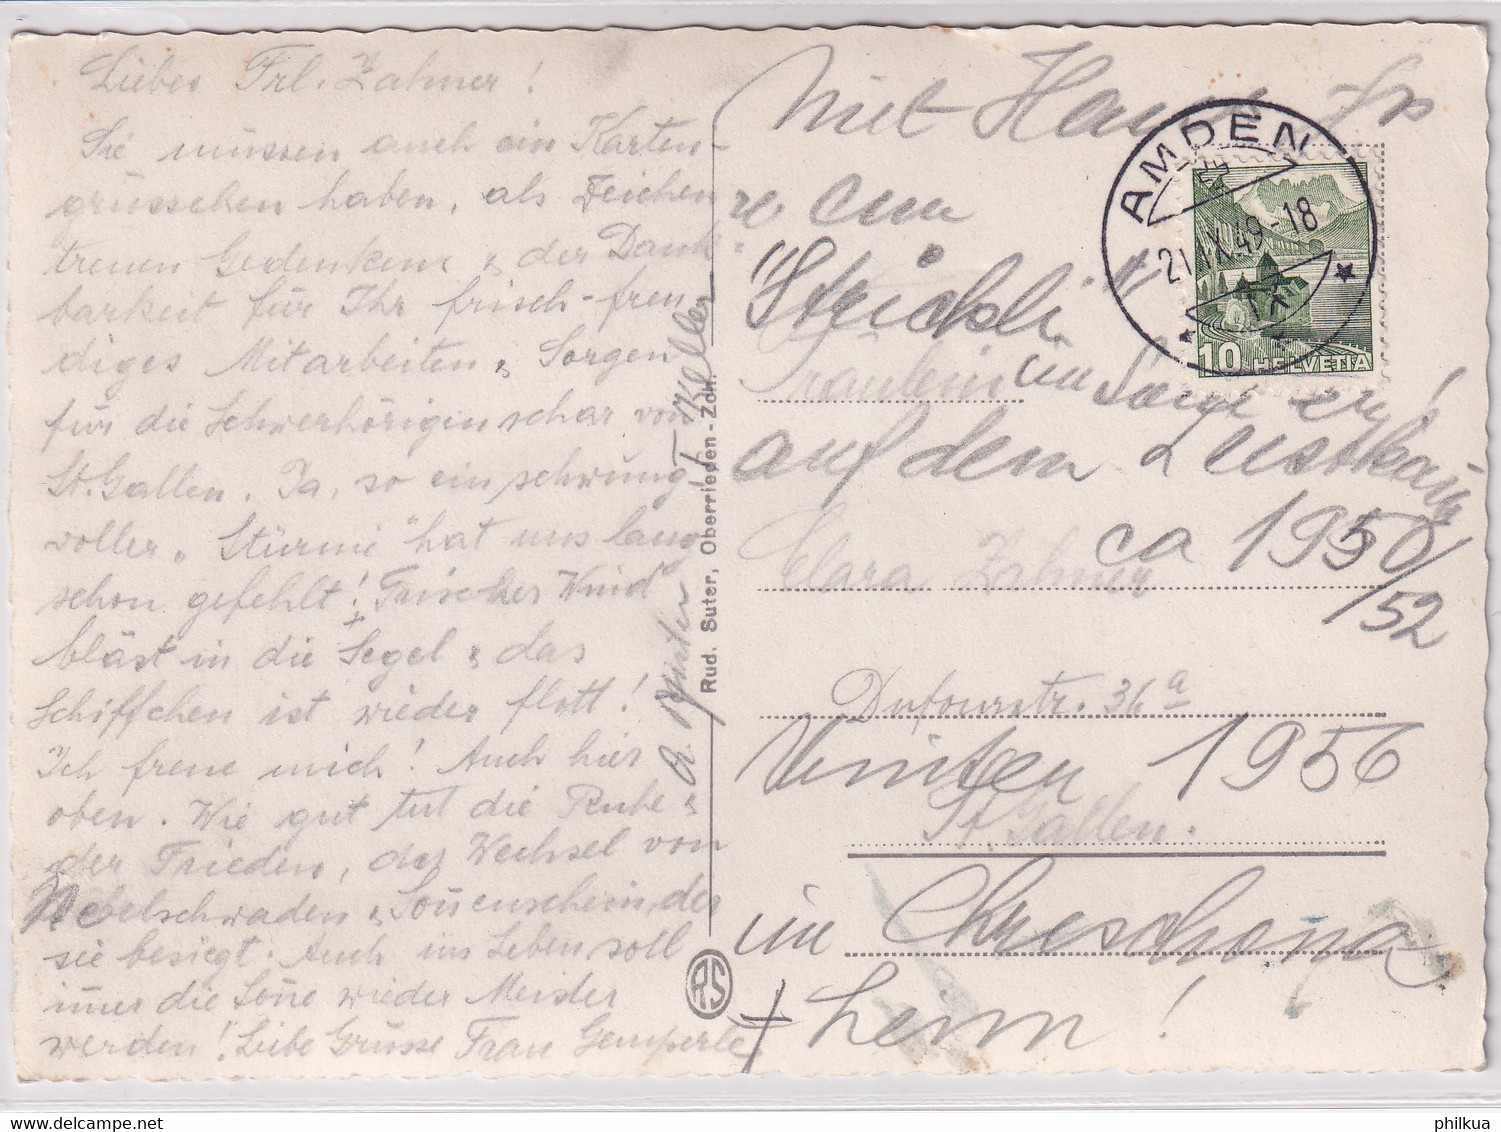 Liebes Frl. Zahner!
Sie müssen auch ein Karten-
grüsschen haben, als Zeichen
treuen Gedenkens & der Dank-
barkeit für Ihr frisch-freu
diges Mitarbeiten & Sorgen
für die Schwerhörigenschar von
St. Gallen. Ja, so ein schwung
voller „Stürmi" hat uns lang
schon gefehlt! „Frischer Wind"
bläst in die Segel & das
Schiffchen ist wieder flott!
Ich freue mich! Auch hier
oben. Wie gut tut die Ruhe &
der Frieden, der Wechsel von
Nebelschwaden & Soñenschein, der
sie besiegt. Auch ins Leben soll
im̄er die Soñe wieder Meister
werden! Liebe Grüsse Frau Gemperle
Keller
Rud. Suter, Oberrieden-Zch.
RS
Mit
"Strickli"
auf dem
ca 1950/52
Fräulein
Clara Zahner
Dufourstr. 36a
St. Gallen.
1956
im Chreschona
+ Heim!
AMDEN
21.IX.49-18
10 HELVETIA
philkua